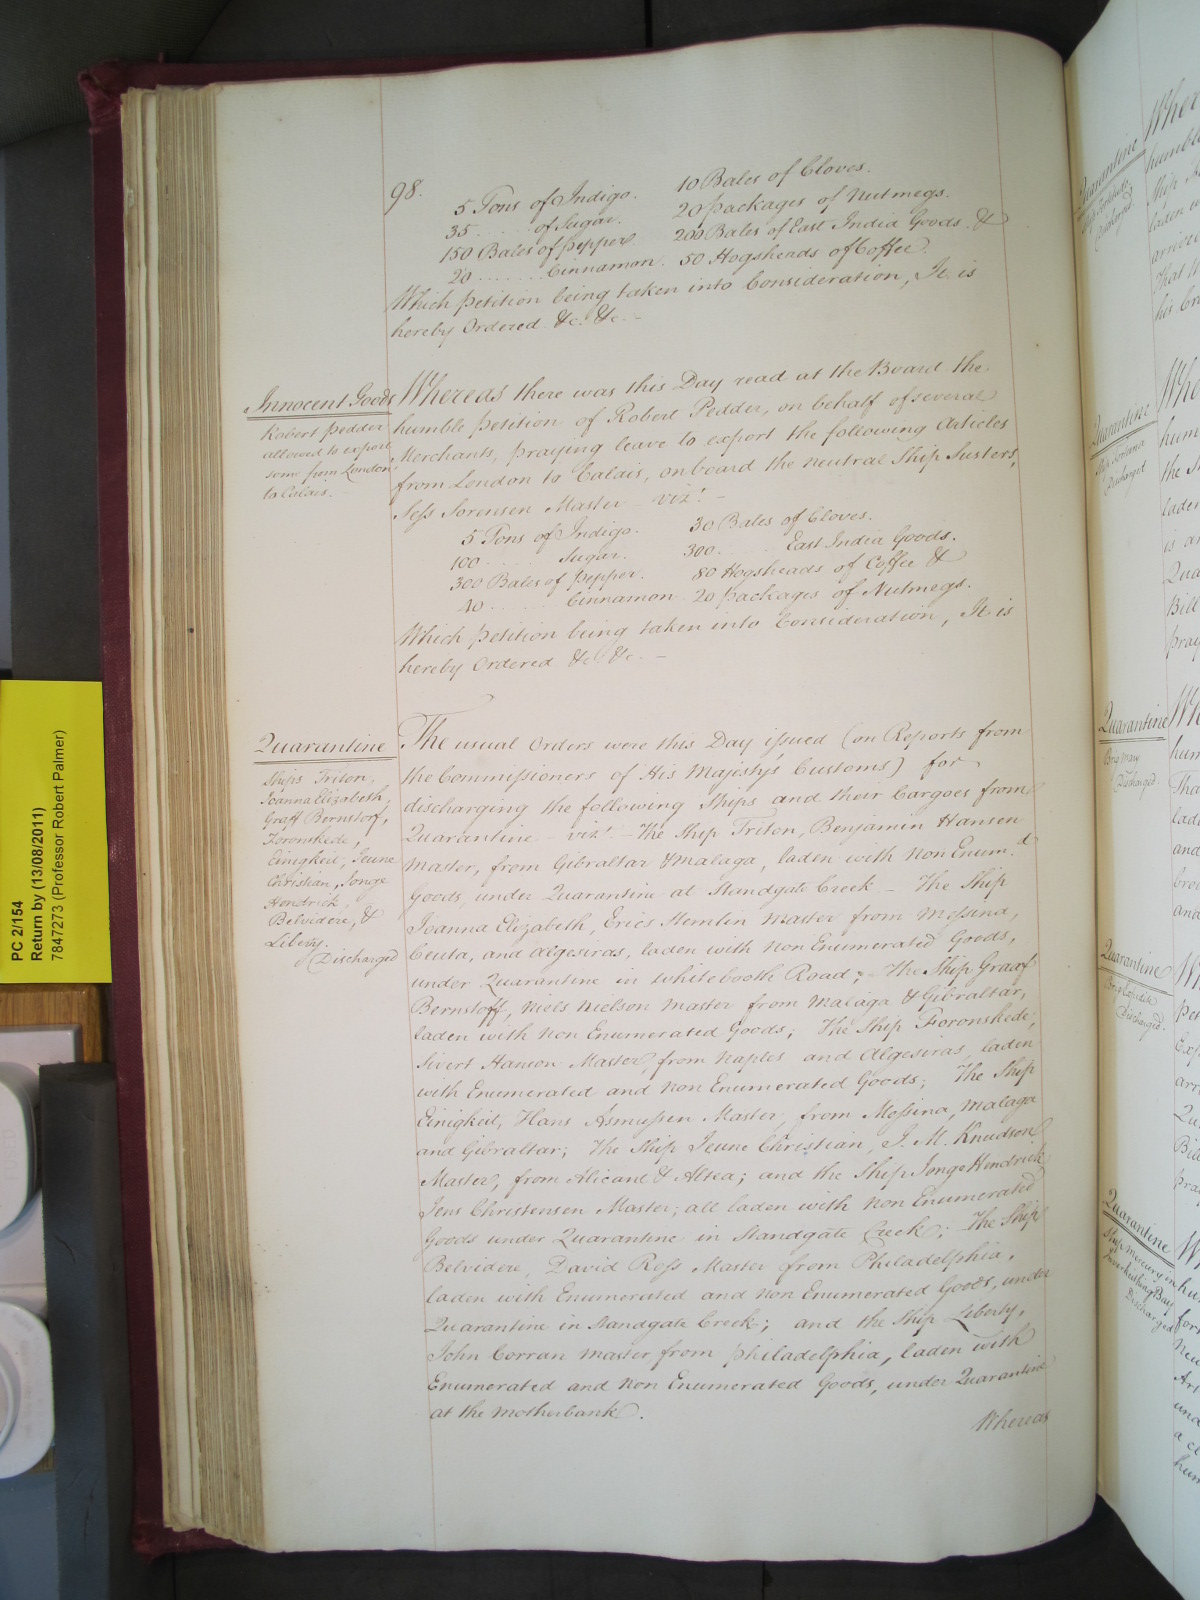 98.
5 Tons of Indigo. 10 Bales of Cloves.
35 ..... of Sugar. 20 packages of Nutmegs.
150 Bales of pepper 200 Bales of East India Goods. &
20 ........ Cinnamon. 50 Hogsheads of Coffee.
Which petition being taken into Consideration, It is
hereby Ordered &c. &c. –
Innocent Goods
Robert Pedder
allowed to export
some from London
to Calais. –
Whereas there was this Day read at the Board the
humble petition of Robert Pedder, on behalf of several
Merchants, praying leave to export the following Articles
from London to Calais, onboard the neutral Ship Susters,
Jess Sorensen Master viz.t –
5 Tons of Indigo. 30 Bales of Cloves.
100 ..... Sugar. 300 ..... East India Goods.
300 Bales of pepper. 80 Hogsheads of Coffee &
40 ........ Cinnamon 20 packages of Nutmegs.
Which petition being taken into Consideration, It is
hereby Ordered &c. &c. –
Quarantine
Ships Triton,
Joanna Elizabeth,
Graff Bernstorf,
Foronskede,
Einigkeit, Jeune
Christian, Jonge
Hendrick,
Belvidere, &
Liberty.
Discharged
The usual Orders were this Day issued (on Reports from
the Commissioners of His Majesty's Customs) for
discharging the following Ships and their Cargoes from
Quarantine – viz.t – The Ship Triton, Benjamin Hansen
master, from Gibraltar & Malaga, laden with Non Enum.d
Goods, under Quarantine at Standgate Creek – The Ship
Joanna Elizabeth, Erics Hemlin Master from Messina,
Ceuta, and Algesiras, laden with Non Enumerated Goods,
under Quarantine in Whitebooth Road; The Ship Graaf
Bernstoff, Niels Nielson master from Malaga & Gibraltar,
laden with Non Enumerated Goods; The Ship Foronskede,
Sivert Hanson Master, from Naples and Algesiras, laden
with Enumerated and Non Enumerated Goods; The Ship
Einigkeit, Hans Asmussen Master, from Messina, Malaga
and Gibraltar; The Ship Jeune Christian, J. M. Knudson
Master, from Alicant & Altea; and the Ship Jonge Hendrick,
Jens Christensen Master; all laden with Non Enumerated
Goods under Quarantine in Standgate Creek; The Ship
Belvidere, David Ross Master from Philadelphia,
laden with Enumerated and Non Enumerated Goods, under
Quarantine in Standgate Creek; and the Ship Liberty,
John Corran master from philadelphia, laden with
Enumerated and Non Enumerated Goods, under Quarantine
at the Motherbank.
Whereas
PC 2/154
Return by (13/08/2011)
7847273 (Professor Robert Palmer)
Quarantine
Discharged
Quarantine
Discharged
Quarantine
Brig Mary
Discharged.
Quarantine
Discharged.
Quarantine
Ship Mercury in
Inverkeithing Bay
Discharged